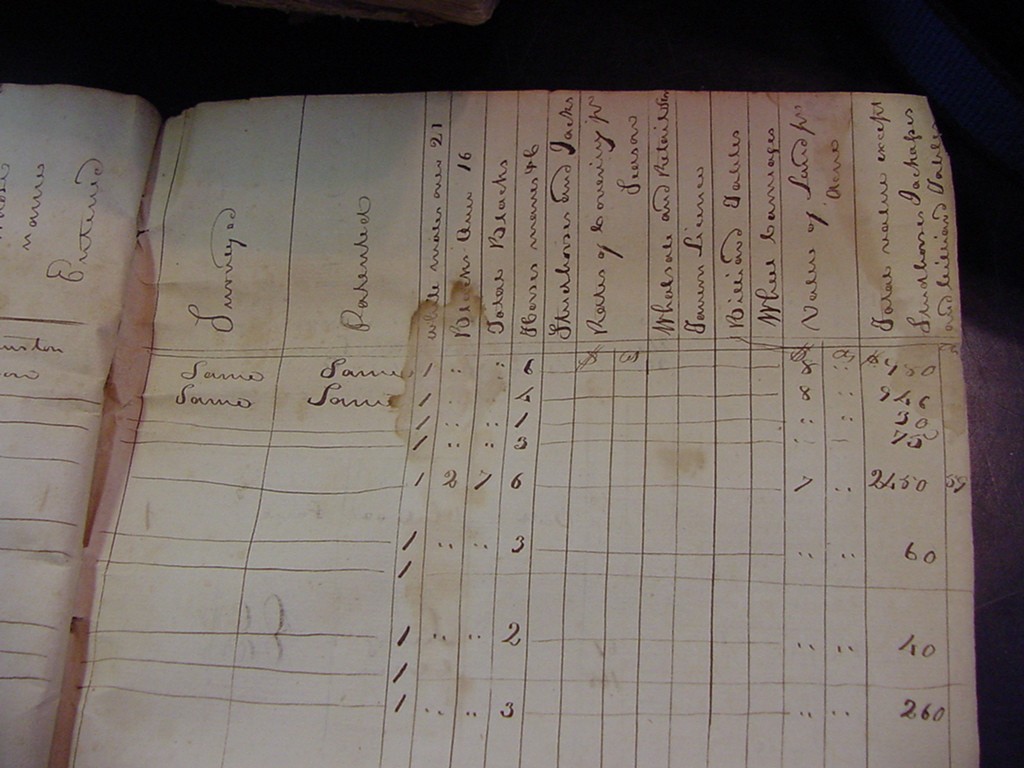 names
Entered
Surveyed
Patented
White males over 21
Blacks over 16
Total Blacks
Horses mares &c
Studhorses and Jacks
Rates of Covering pr Season
Wholesale and Retail Stores
Tavern License
Billiard Tables
Wheel Carriages
Value of Land pr Acre
Total value except Studhorses Jackasses and Billiard Tables
$ $ $
Same Same 1 " " 6 8 "
Same Same 1 4 8 " 946
1 " " 1 " " 30
1 " " 3 " " 75
1 2 7 6 7 " 2450
1 " " 3 " " 60
1
1 " " 2 " " 40
1
1 " " 3 " " 260